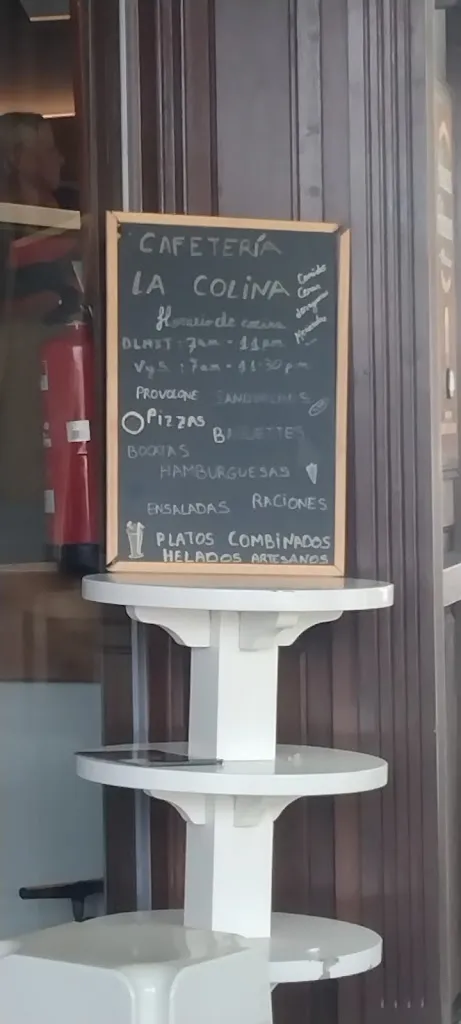 CAFETERÍA
LA COLINA
Horario de cocina
Comida
Cena
desayuno
Merienda
7am - 11pm
V y S : 7am - 11:30pm
PROVOLONE SANDWICHES
PIZZAS
BAGUETTES
BOCATAS
HAMBURGUESAS
ENSALADAS RACIONES
PLATOS COMBINADOS
HELADOS ARTESANOS